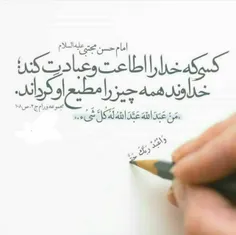 امام حسن مجتبی علیه‌السلام
کسی‌که خدا را اطاعت و عبادت کند؛
خداوند همه چیز را مطیع او گرداند.
«مَنْ عَبَدَ اللهَ عَبَّدَ اللهُ لَهُ كُلَّ شَیْءٍ...»
وَاعْبُدْ رَبَّكَ